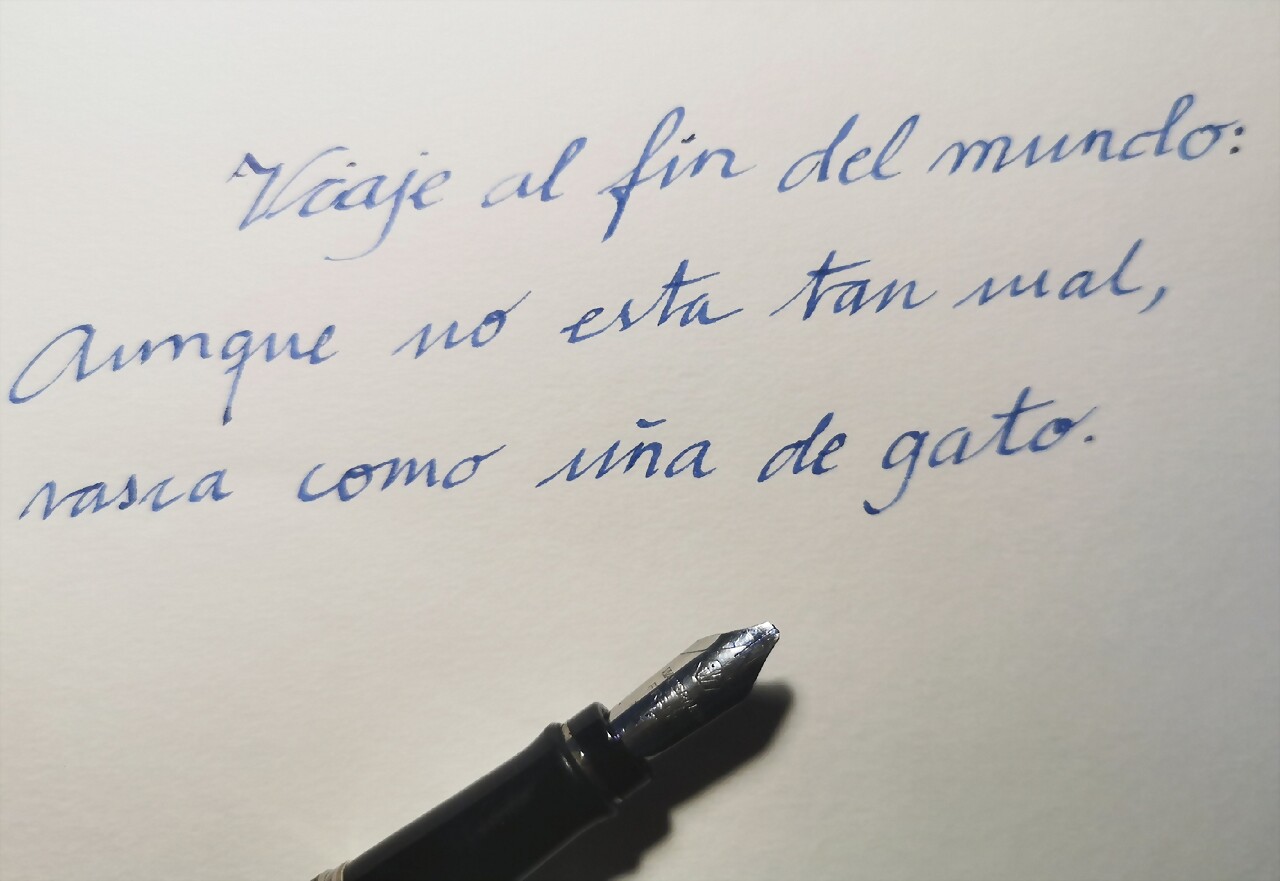 Viaje al fin del mundo:
Aunque no esta tan mal,
rasca como uña de gato.